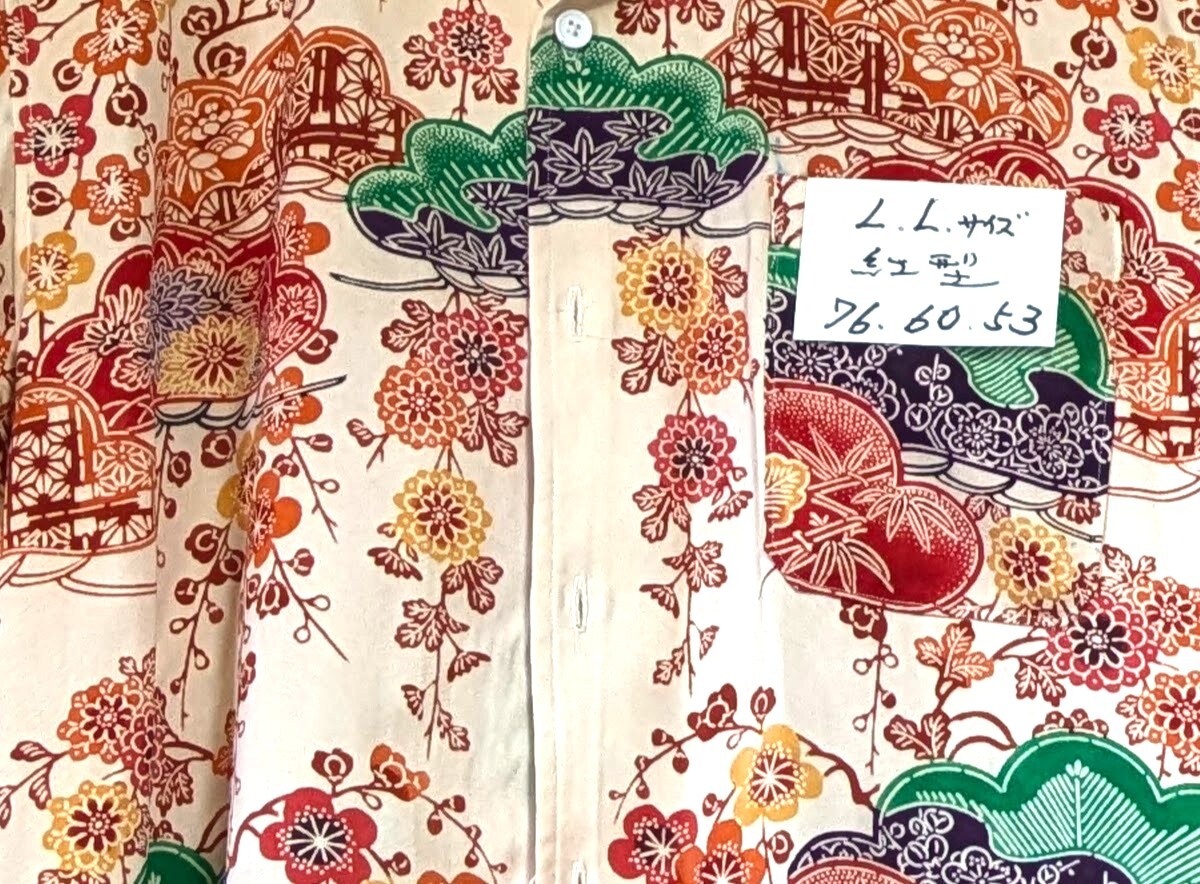 L.L.サイズ
紅型
76.60.53